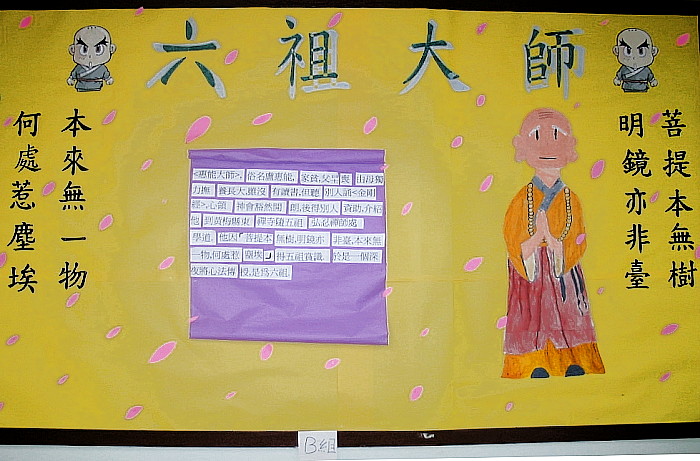 六祖大師
菩提本無樹
明鏡亦非臺
本來無一物
何處惹塵埃
<惠能大師>, 俗名盧惠能, 家貧,父早喪 由母獨
力撫 養長大,雖沒 有讀書,但聽 別人誦<金剛
經>,心領 神會豁然開 朗,後得別人 資助,介紹
他 到黃梅縣東 禪寺隨五祖 弘忍禪師處
學道, 他因「菩提本 無樹,明鏡亦 非臺,本來無
一物,何處惹 塵埃」 得五祖賞識 於是一個深
夜將心法傳 授,是為六祖.
B組